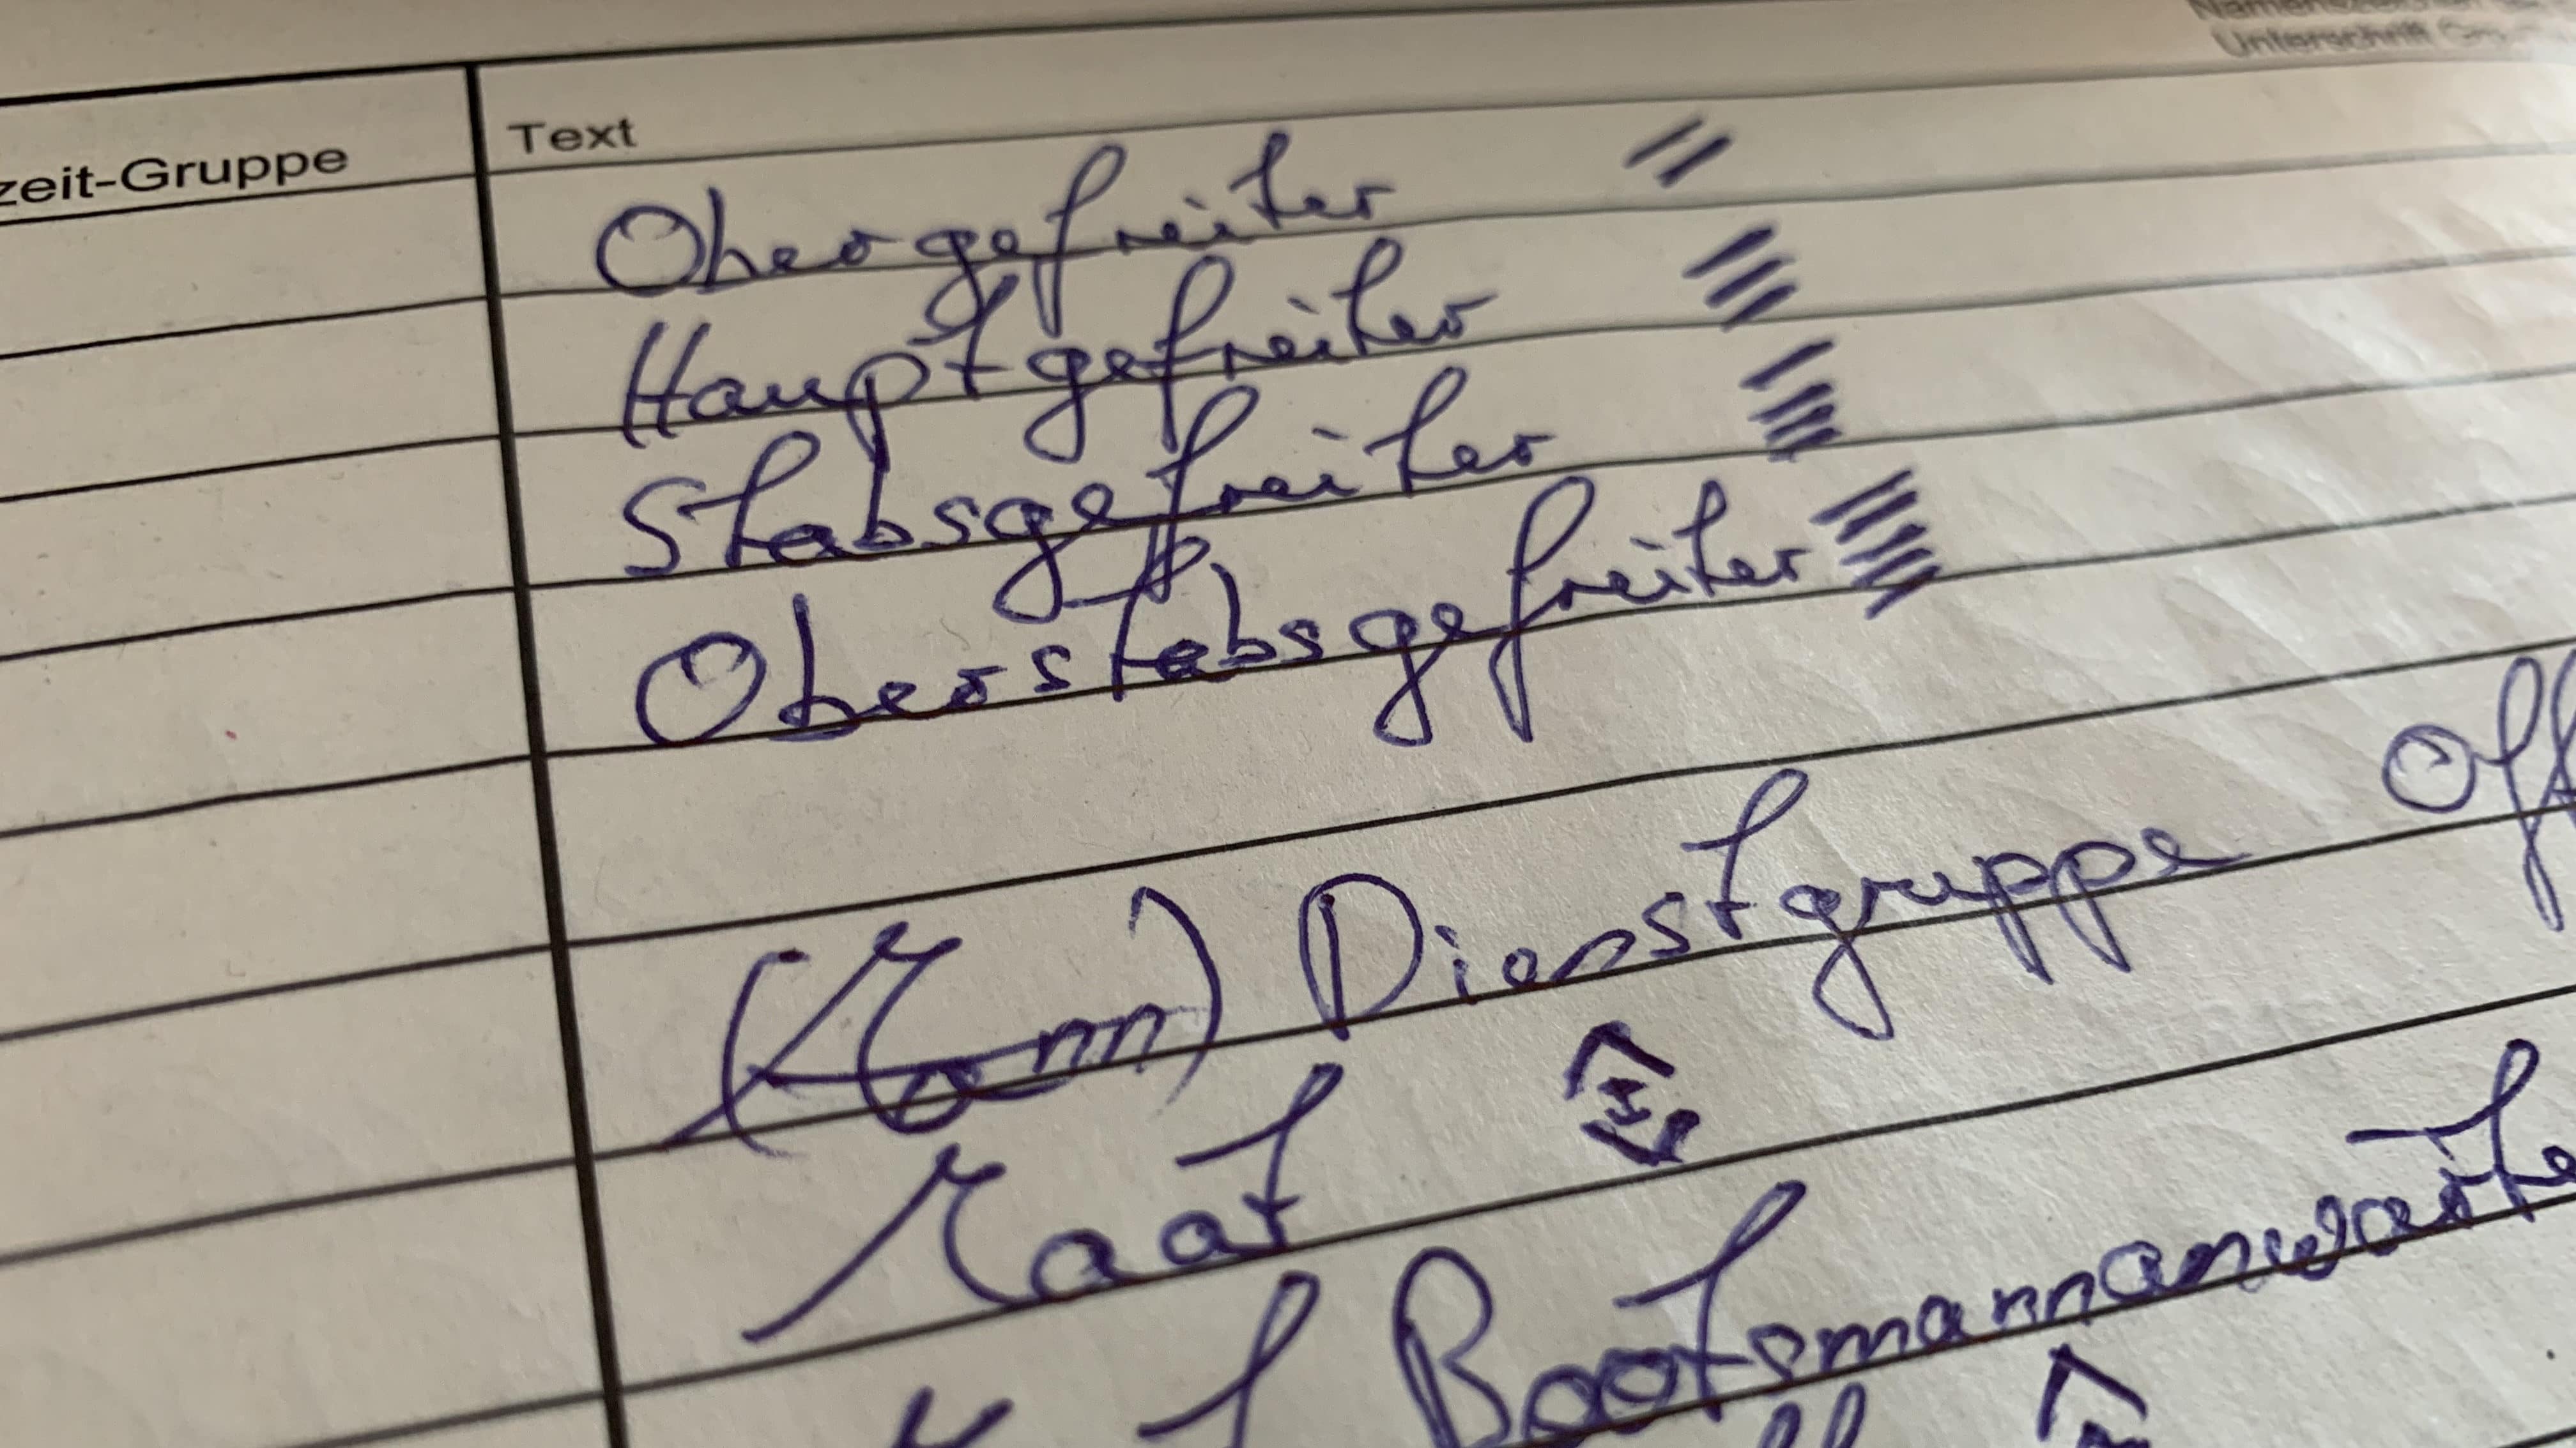 Unterschrift
zeit-Gruppe
Text
Obergefreiter
Hauptgefreiter
Stabsgefreiter
Oberstabsgefreiter
Dienstgruppe
Maat
Bootsmannanwärte